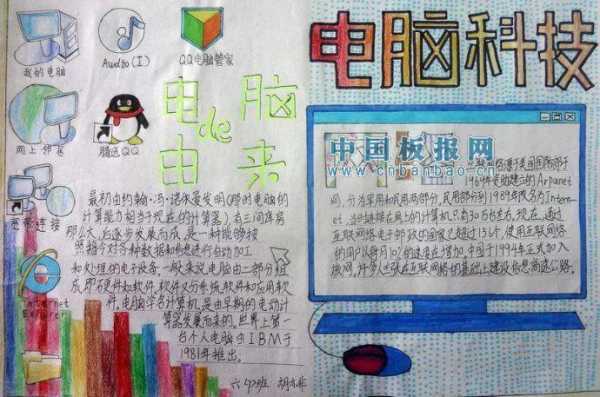 我的电脑
Audio(I)
QQ电脑管家
网上邻居
腾迅QQ
宽带连接
Internet
Explorer
电脑
de
由来
最初由约翰·冯·诺依曼发明(那时电脑的
计算能力相当于现在的计算器)有三间库房
那么大,后逐步发展而成,是一种能够按
照指令对各种数据和信息进行自动加工
和处理的电子设备,一般来说电脑由二部分组
成即硬件和软件,软件又分系统软件和应用软
件,电脑学名计算机,是由早期的电动计
算器发展而来的,世界上第一
台个人电脑由IBM于
1981年推出。
六(2)班
电脑科技
中国板报网
www.cnbanbao.cn
1969年筹建的Arpanet
网,分为军用和民用两部分,民用部分到1989年改名为Inter-
net,当时连接在网上的计算机只有30万台左右,现在,通过
互联网络电子邮政的国家已超过134个,使用互联网络
的用户以每月10%的速度在增加,中国于1994年正式加入
该网,许多人还在互联网络的基础上建设信息高速公路。